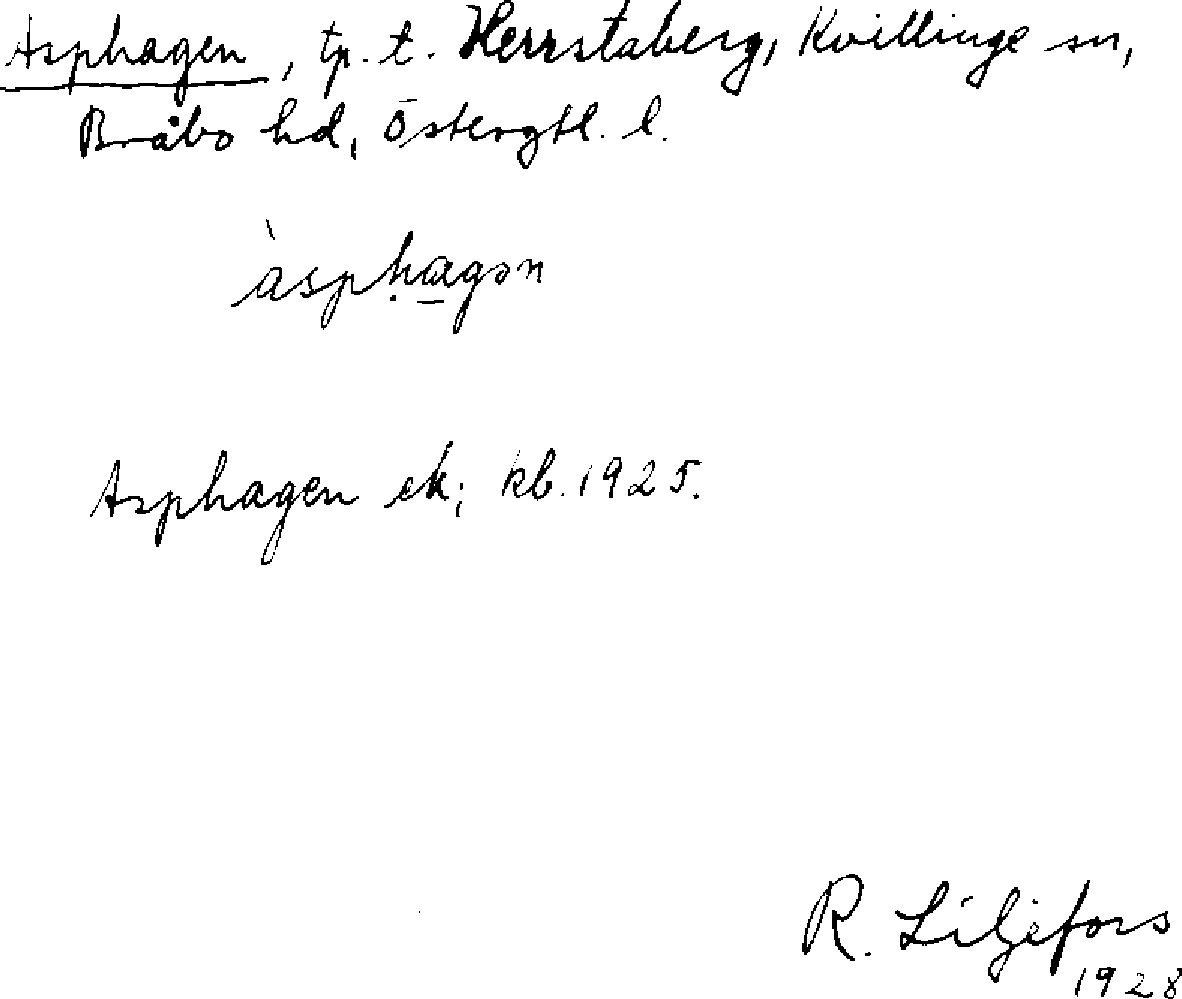 Asphagen, tp. t. Herrstaberg, Kvillinge sn,
Bråbo hd, Östergtl. l.
àspḥa̲gən
Asphagen ek; kb. 1925.
R. Liljefors
1928